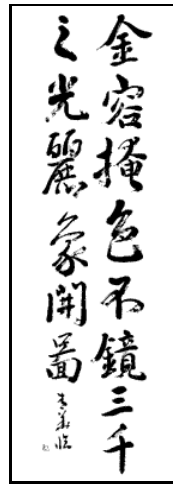 金容掩色不鏡三千
之光麗象開啚